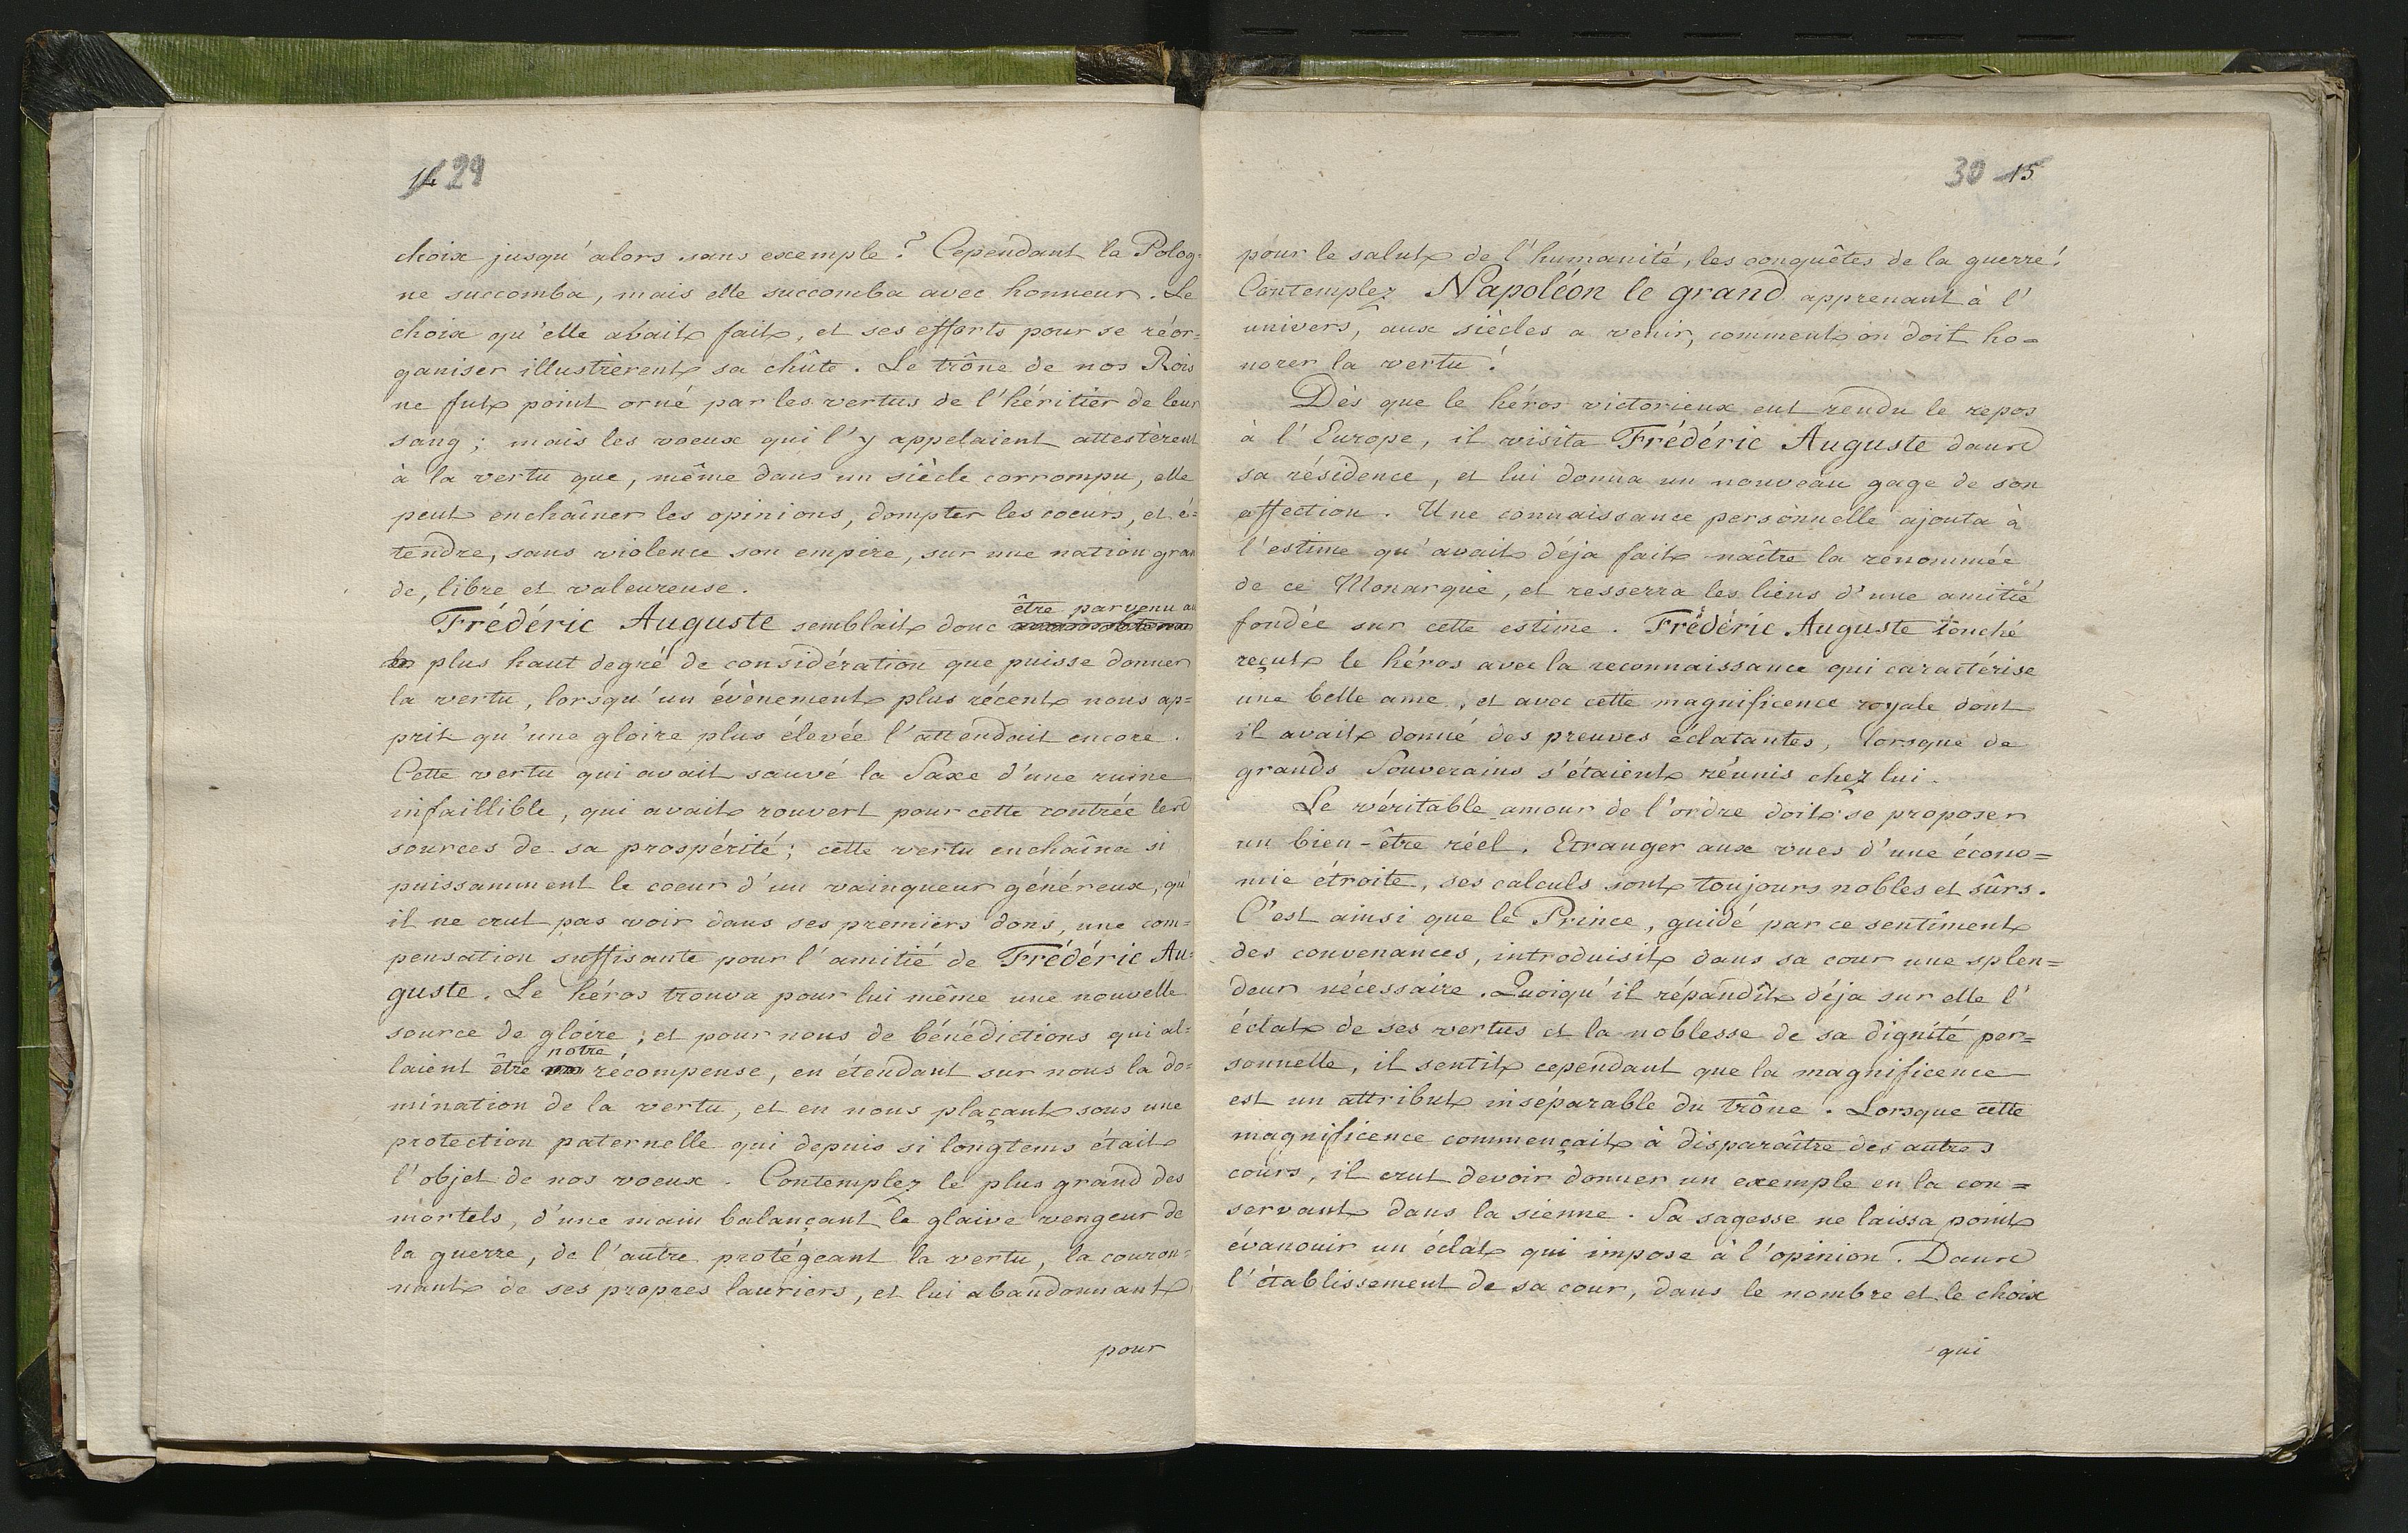 14 29
choix jusqu'alors sans exemple? Cependant la Polog-
ne succomba, mais elle succomba avec honneur. Le
choix qu'elle avait fait, et ses efforts pour se réor=
ganiser illustrèrent sa chûte. Le trône de nos Rois
ne fut point orné par les vertus de l'héritier de leur
sang; mais les voeux qui l'y appelaient attestèrent
à la vertu que, même dans un siècle corrompu, elle
peut enchaîner les opinions, dompter les coeurs, et é=
tendre, sans violence son empire, sur une nation gran
de, libre et valeureuse.
être parvenu au
Frédéric Auguste semblait donc
plus haut degré de considération que puisse donner
la vertu, lorsqu'un évènement plus récent nous ap=
prit qu'une gloire plus élevée l'attendait encore.
Cette vertu qui avait sauvé la Saxe d'une ruine
infaillible, qui avait rouvert pour cette contrée les
sources de sa prospérité; cette vertu enchaîna si
puissamment le coeur d'un vainqueur généreux, qu'
il ne crut pas voir dans ses premiers dons, une com=
pensation suffisante pour l'amitié de Frédéric Au=
guste. Le héros trouva pour lui même une nouvelle
source de gloire; et pour nous de bénédictions qui al=
notre
laient être récompense, en étendant sur nous la do=
mination de la vertu, et en nous plaçant sous une
protection paternelle qui depuis si longtems était
l'objet de nos voeux. Contemplez le plus grand des
mortels, d'une main balançant le glaive vengeur de
la guerre, de l'autre protégeant la vertu, la couron=
nant de ses propres lauriers, et lui abandonnant
pour
30 15
pour le salut de l'humanité, les conquêtes de la guerre!
Contemplez Napoléon le grand apprenant à l'
univers, aux siècles a venir, comment on doit ho=
norer la vertu!
Dès que le héros victorieux eut rendu le repos
à l'Europe, il visita Frédéric Auguste dans
sa résidence, et lui donna un nouveau gage de son
affection. Une connaissance personnelle ajouta à
l'estime qu'avait déja fait naître la renommée
de ce Monarque, et resserra les liens d'une amitié
fondée sur cette estime. Frédéric Auguste touché
reçut le héros avec la reconnaissance qui caractérise
une belle ame, et avec cette magnificence royale dont
il avait donné des preuves éclatantes, lorsque de
grands Souverains s'étaient réunis chez lui.
Le véritable amour de l'ordre doit se proposer
un bien-être réel. Etranger aux vues d'une écono=
mie étroite, ses calculs sont toujours nobles et sûrs.
C'est ainsi que le Prince, guidé par ce sentiment
des convenances, introduisit dans sa cour une splen=
deur nécessaire. Quoiqu'il répandît déja sur elle l'
éclat de ses vertus et la noblesse de sa dignité per=
sonnelle, il sentit cependant que la magnificence
est un attribut inséparable du trône. Lorsque cette
magnificence commençait à disparaître des autres
cours, il crut devoir donner un exemple en la con=
servant dans la sienne. Sa sagesse ne laissa point
évanouir un éclat qui impose à l'opinion. Dans
l'établissement de sa cour, dans le nombre et le choix
qui